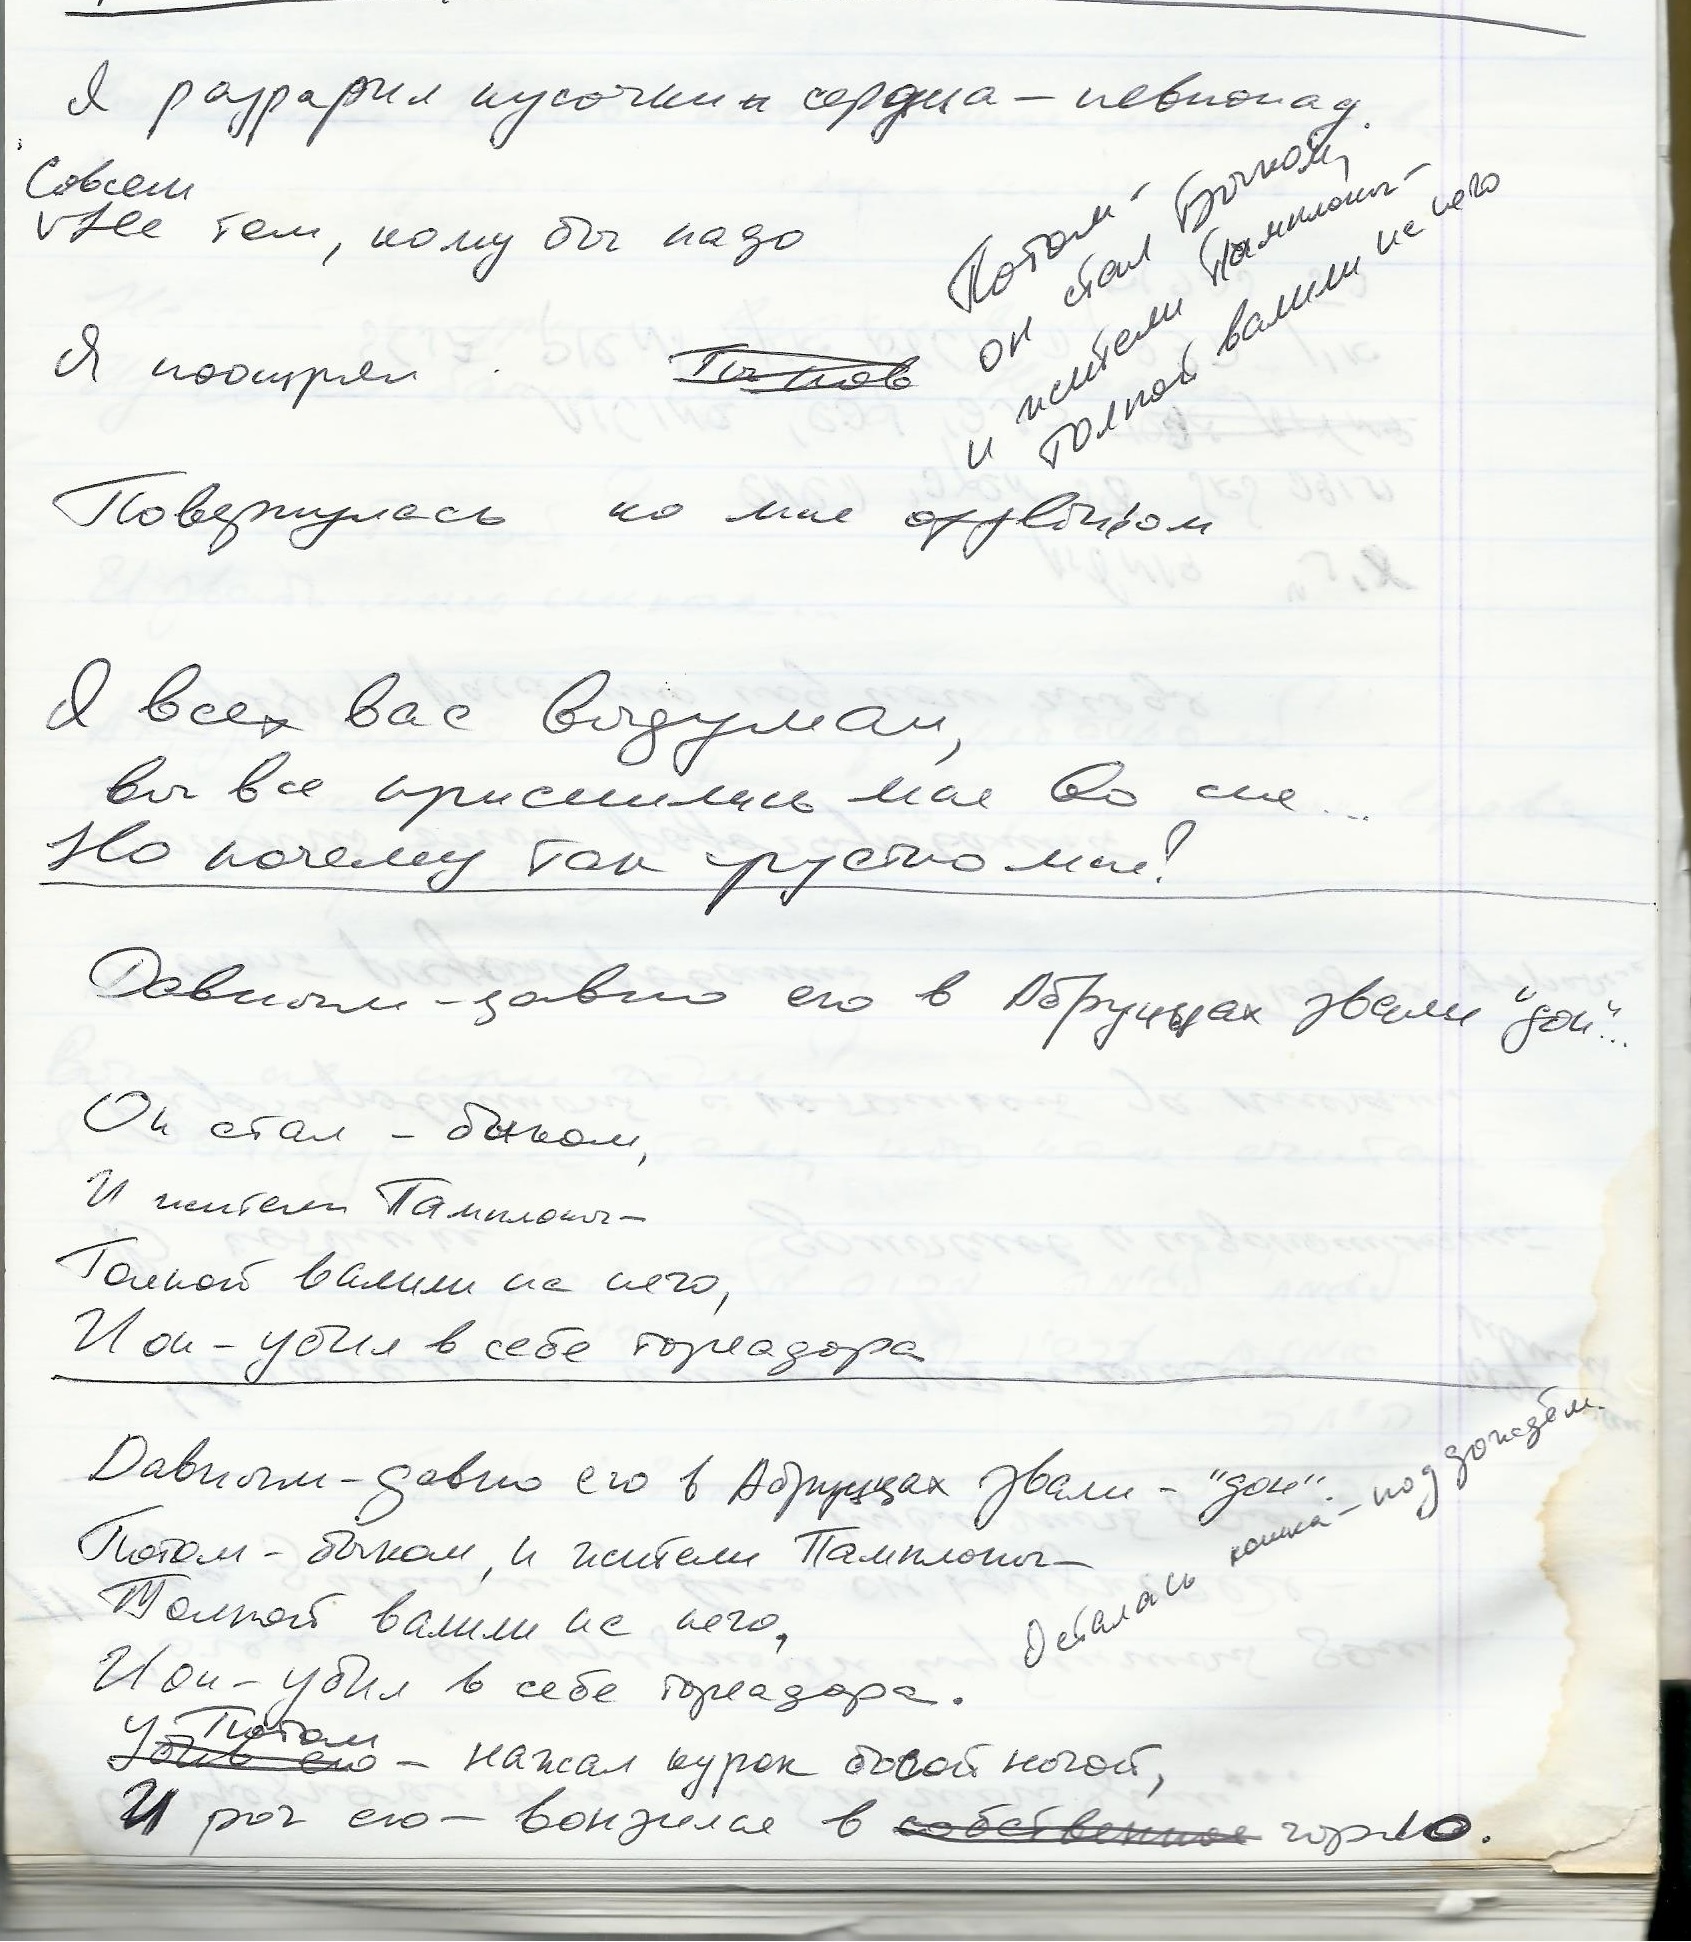 Я раздарил кусочки сердца – невпопад.
Совсем
Не тем, кому бы надо
Потом –
он стал Бычком,
и жители Памплоны –
толпой валили на него
Я поощрял
Повернулась ко мне offlin'ом
Я всех вас выдумал,
вы все приснились мне во сне...
Но почему так грустно мне?
Давным-давно его в Абруццах звали "дон"...
Он стал – быком,
И жители Памплоны –
Толпой валили на него,
И он – убил в себе тореадора
Давным-давно его в Абруццах звали – "дон".
Потом – быком, и жители Памплоны –
Толпой валили на него,
И он – убил в себе тореадора.
Осталась кошка – под дождём.
Потом
Убив его – нажал курок босой ногой,
И рог его – вонзился в собственное горло.